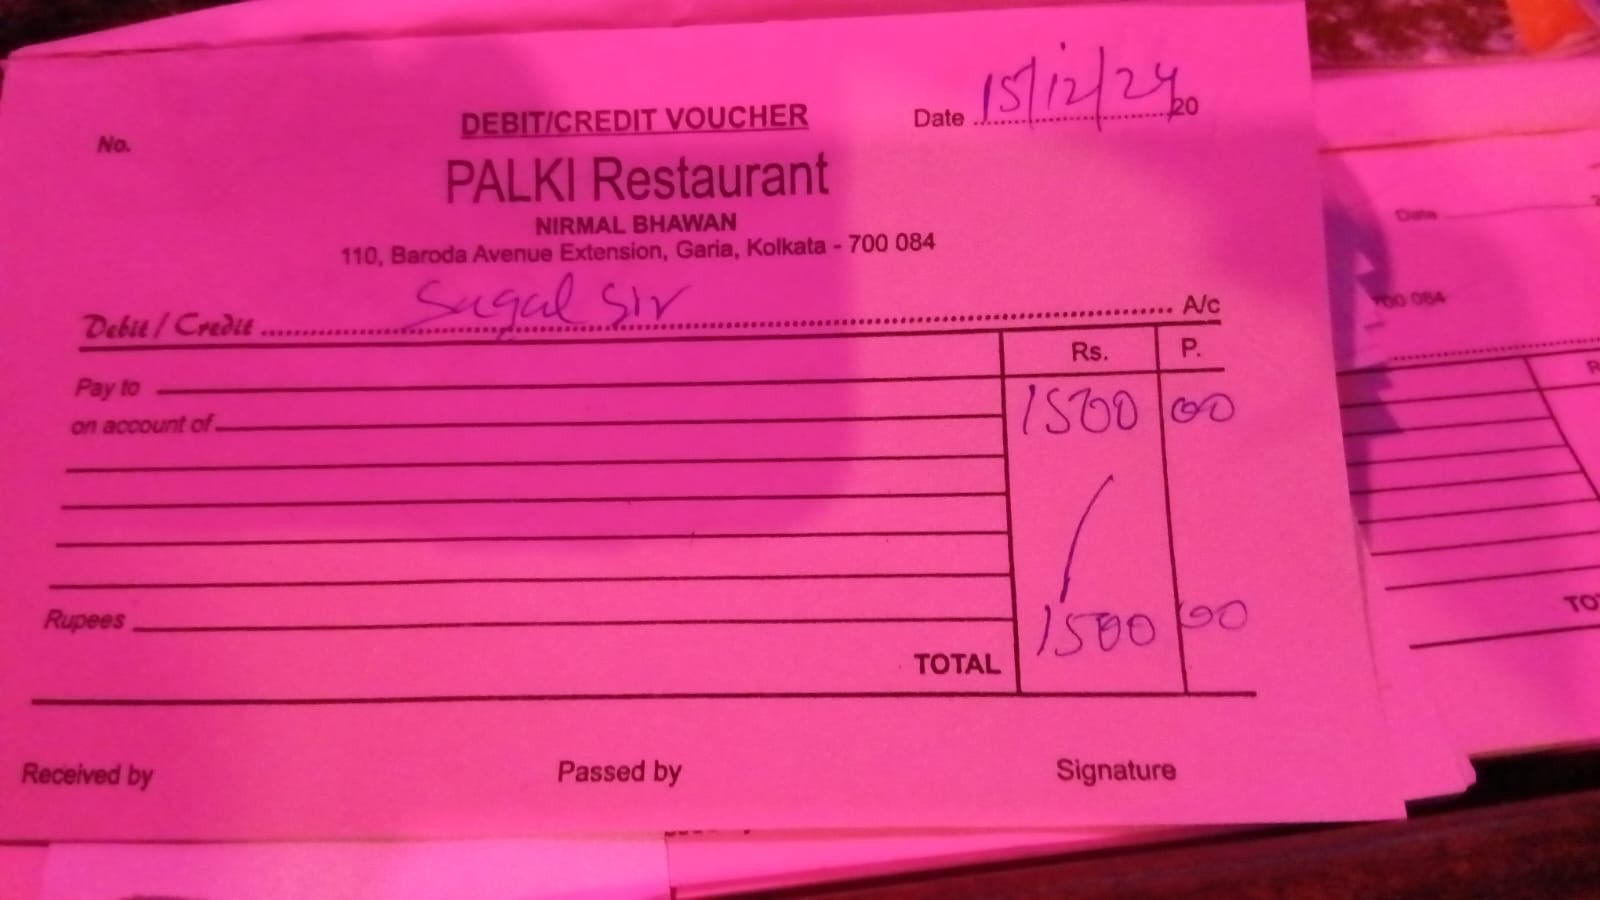 DEBIT/CREDIT VOUCHER
No.
Date 15/12/24 20
PALKI Restaurant
NIRMAL BHAWAN
110, Baroda Avenue Extension, Garia, Kolkata - 700 084
Debit / Credit Sagal Sir A/c
Rs. P.
Pay to
1500 00
on account of
Rupees
1500 00
TOTAL
Received by Passed by Signature
Date
700 084